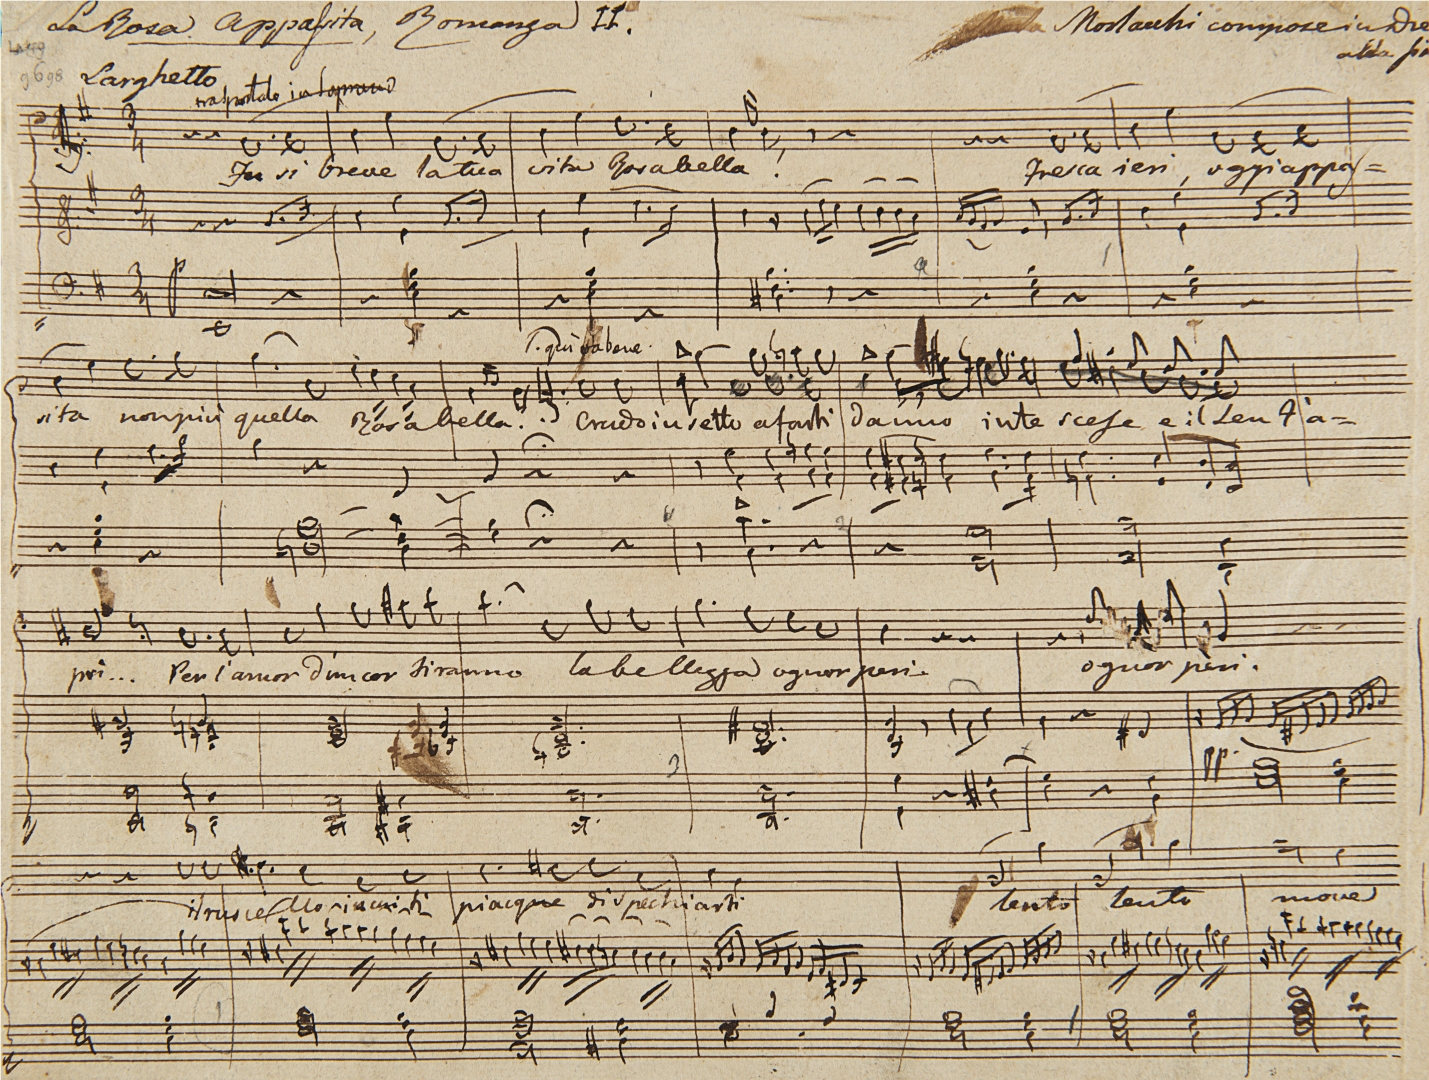 La Rosa Appassita, Romanza II.
Morlacchi compose in Dre
alla
9698
Larghetto
trasportato in soprano
Fu si breve la tua vita Rosa bella! Fresca ieri, oggi appas=
sita non più quella Rosa bella. Crudo insetto a farti danno in te scese e il sen
qui va bene.
peri... Per l'amor d'un cor tiranno la bellezza ognor peri. ognor peri.
pp.
il ruscello piacque di specchiarti lento lento move